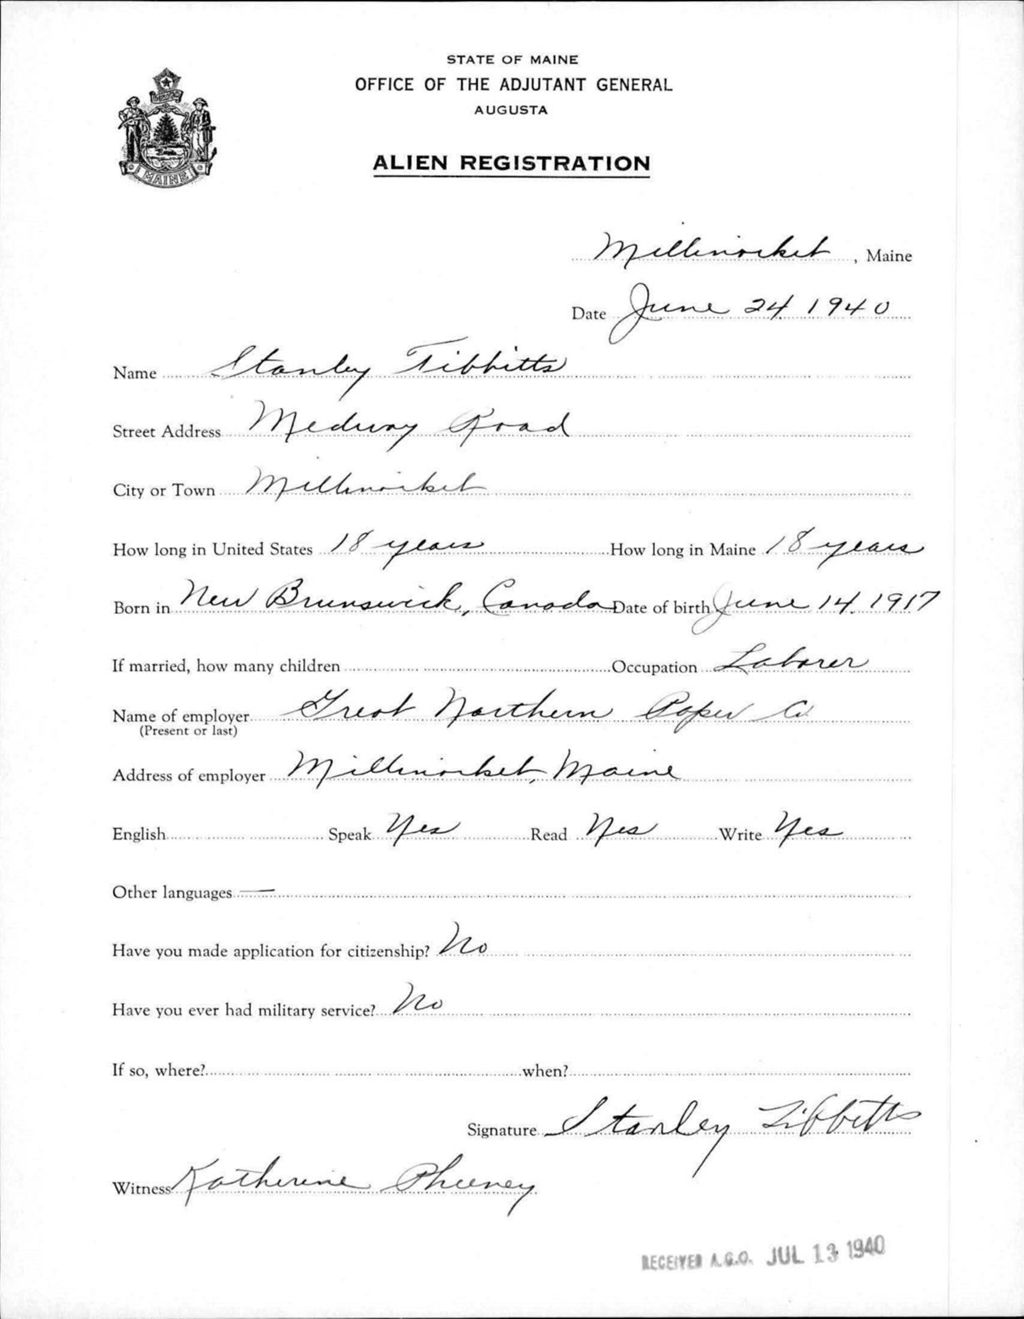 STATE OF MAINE
OFFICE OF THE ADJUTANT GENERAL
AUGUSTA
ALIEN REGISTRATION
MAINE
Millinocket, Maine
Date June 24 1940
Name Stanley Tibbitts
Street Address Medway Road
City or Town Millinocket
How long in United States 18 years How long in Maine 18 years
Born in New Brunswick, Canada Date of birth June 14, 1917
If married, how many children Occupation Laborer
Name of employer Great Northern Paper Co
(Present or last)
Address of employer Millinocket, Maine
English Speak Yes Read Yes Write Yes
Other languages —
Have you made application for citizenship? No
Have you ever had military service? No
If so, where? when?
Signature Stanley Tibbitts
Witness Katherine Pheeney
RECEIVED A.G.O. JUL 13 1940